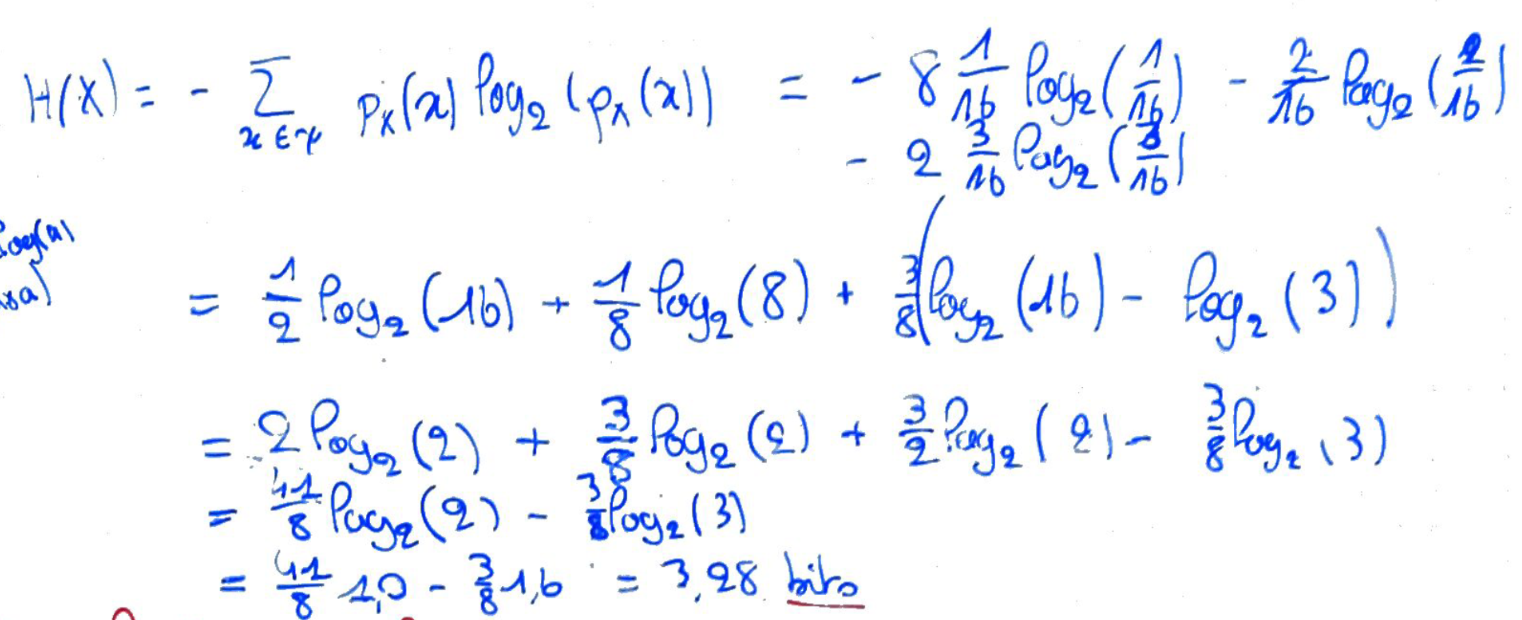 H(X) = - ∑_{x ∈ χ} p_X(x) log₂ (p_X(x)) = - 8 1/16 log₂(1/16) - 2/16 log₂(2/16)
- 2 3/16 log₂(3/16)
log(a)
= 1/2 log₂(16) + 1/8 log₂(8) + 3/8 (log₂(16) - log₂(3))
= 2 log₂(2) + 3/8 log₂(2) + 3/2 log₂(2) - 3/8 log₂(3)
= 41/8 log₂(2) - 3/8 log₂(3)
= 41/8 1,0 - 3/8 1,6 = 3,28 bits